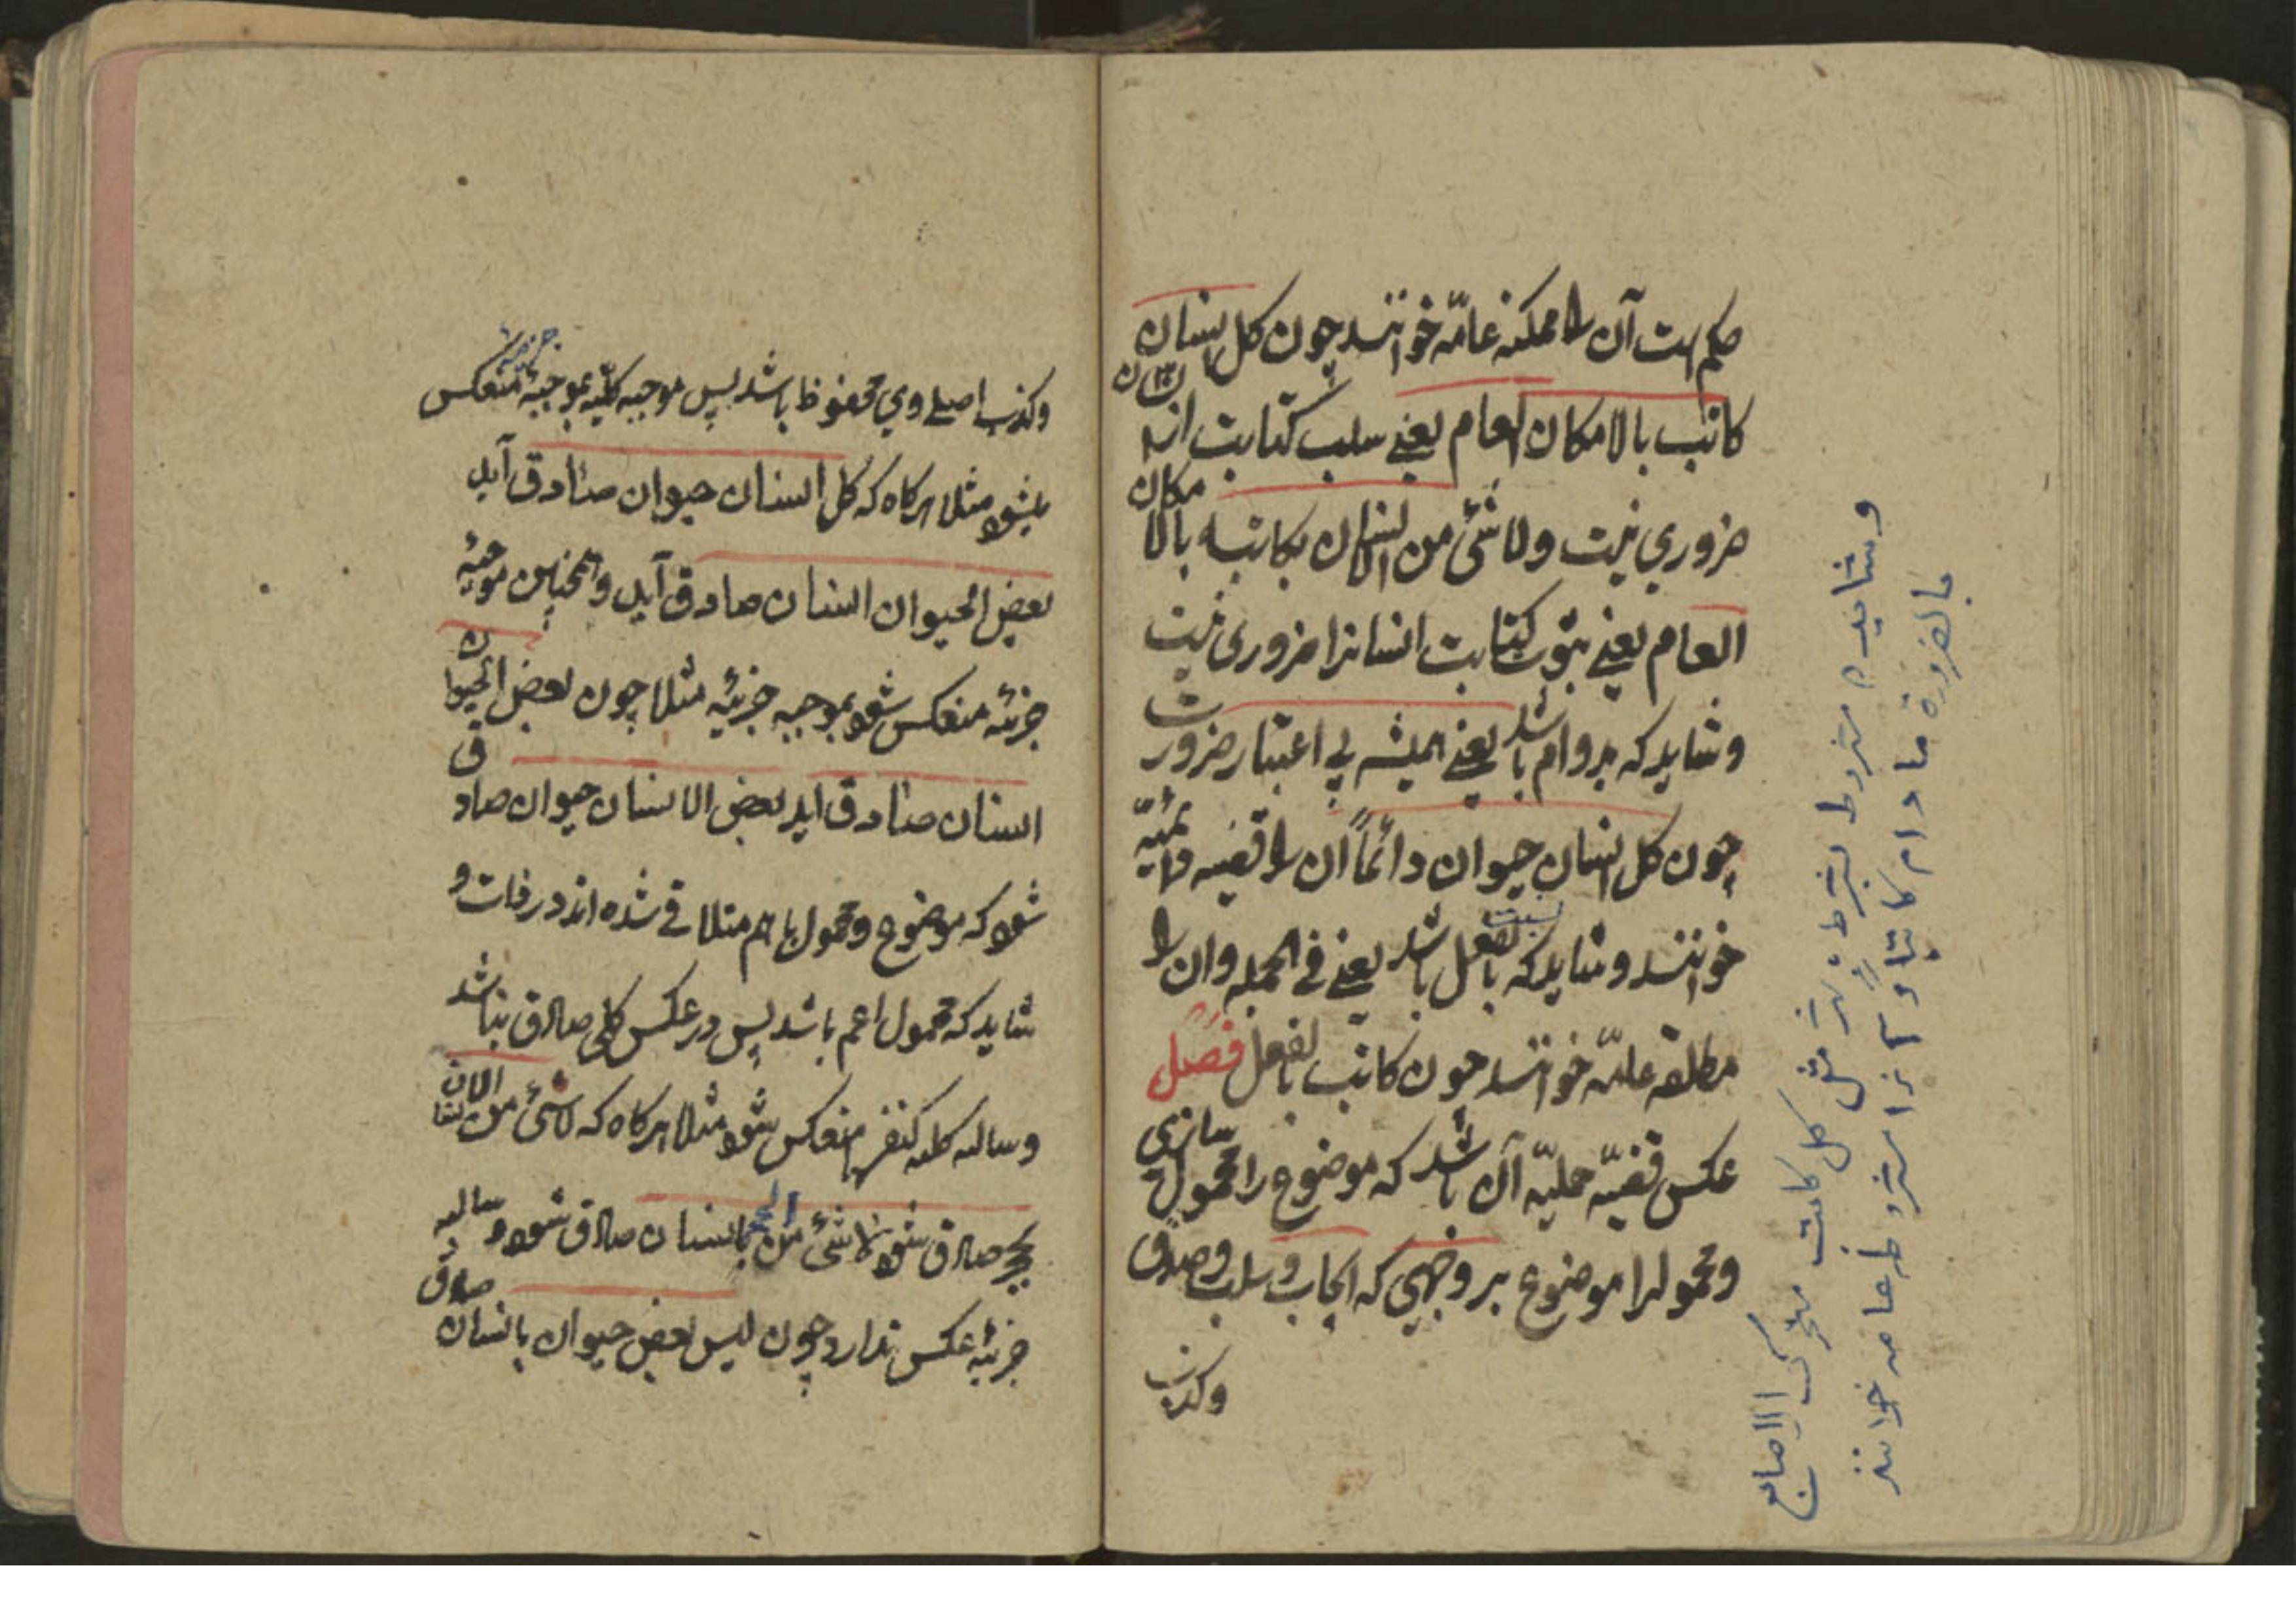 حکم است آن را ممکنه عامّه خوانند چون کل انسان
کاتب بالامکان العام یعنے سلب کتابت از انسان
ضروري نیست ولا شئ من الانسان بکاتب بالامکان
العام یعنے ثبوت کتابت انسانرا ضروری نیست
وشاید که بدوام باشد یعنے همیشه بی اعتبار ضرورت
چون کل انسان حیوان دائماً ان را قضیه دائمیّه
خوانند و شاید که بالفعل باشد یعنے فی الجمله وان را
مطلقه عامّه خوانند چون کاتب بالفعل فصل
عکس قضیّه حملیّه آن باشد که موضوع را محمول سازی
ومحمولرا موضوع بر وجهی که ایجاب و سلب وصدق
وکذب
وشاید مشروط بشرط مثل کل کاتب متحرک الاصابع
بالضرورة ما دام کاتباً و آنرا مشروطه عامه خوانند
وکذب اصلے وي محفوظ باشد پس موجبه کلّیه بموجبۀ جزئیه منعکس
میشود مثلا هرکاه که کل انسان حیوان صادق آید
بعض الحیوان انسان صادق آید وهمچنین موجبۀ
جزئیه منعکس شود بموجبه جزئیه مثلا چون بعض الحیوان
انسان صادق اید بعض الانسان حیوان صادق
شود که موضوع ومحمول با هم متلاقے شده اند در ذات و
شاید که محمول اعم باشد پس در عکس کلی صادق نباشد
وسالبه کلیه کنفسها منعکس شود مثلا هرکاه که لا شئ من الانسان
بحجر صادق شود لا شئ من الحجر بانسان صادق شود و سالبه
جزئیه عکس ندارد چون لیس بعض حیوان بانسان صادق